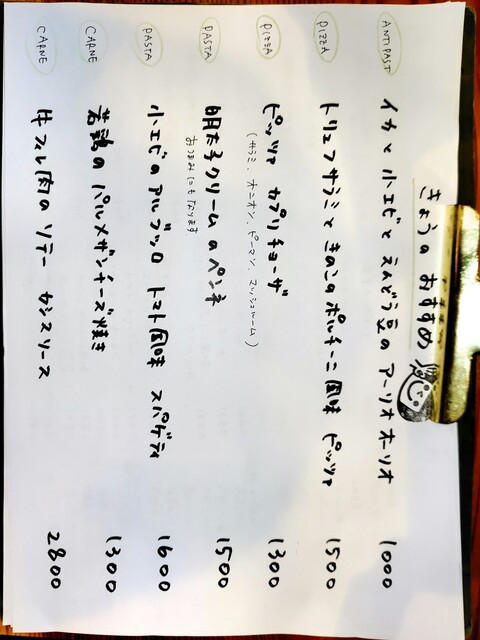 きょうの おすすめ
ANTIPAST イカと小エビとえんどう豆のアーリオオーリオ 1000
PIZZA トリュフサラミときのこのポルチーニ風味 ピッツァ 1500
PIZZA ピッツァ カプリチョーザ 1300
(サラミ、オニオン、ピーマン、マッシュルーム)
PASTA 明太子クリームのペンネ 1500
おつまみにもなります
PASTA 小エビのアルブッロ トマト風味 スパゲティ 1600
CARNE 若鶏のパルメザンチーズ焼き 1300
CARNE 牛フィレ肉のソテー カシスソース 2800